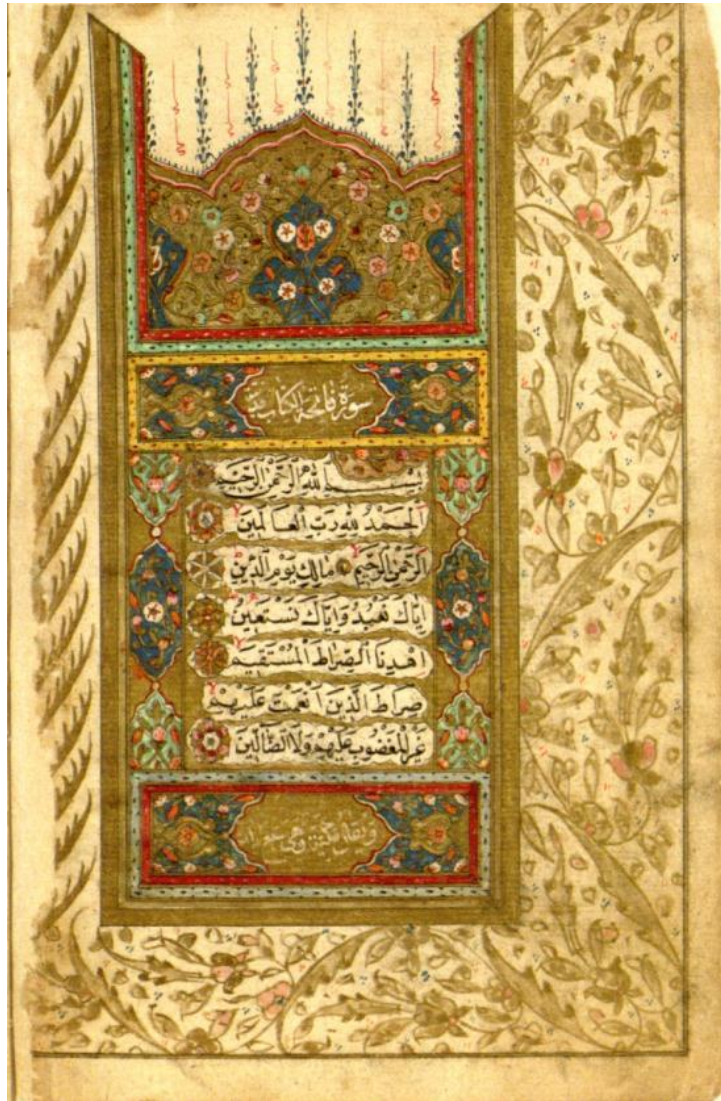 سورة فاتحة الكتاب
بِسْمِ اللهِ الرَّحْمٰنِ الرَّحِيمِ
اَلْحَمْدُ لِلهِ رَبِّ الْعَالَمِينَ
اَلرَّحْمٰنِ الرَّحِيمِ مَالِكِ يَوْمِ الدِّينِ
اِيَّاكَ نَعْبُدُ وَاِيَّاكَ نَسْتَعِينُ
اِهْدِنَا الصِّرَاطَ الْمُسْتَقِيمَ
صِرَاطَ الَّذِينَ اَنْعَمْتَ عَلَيْهِمْ
غَيْرِ الْمَغْضُوبِ عَلَيْهِمْ وَلَا الضَّالِّينَ